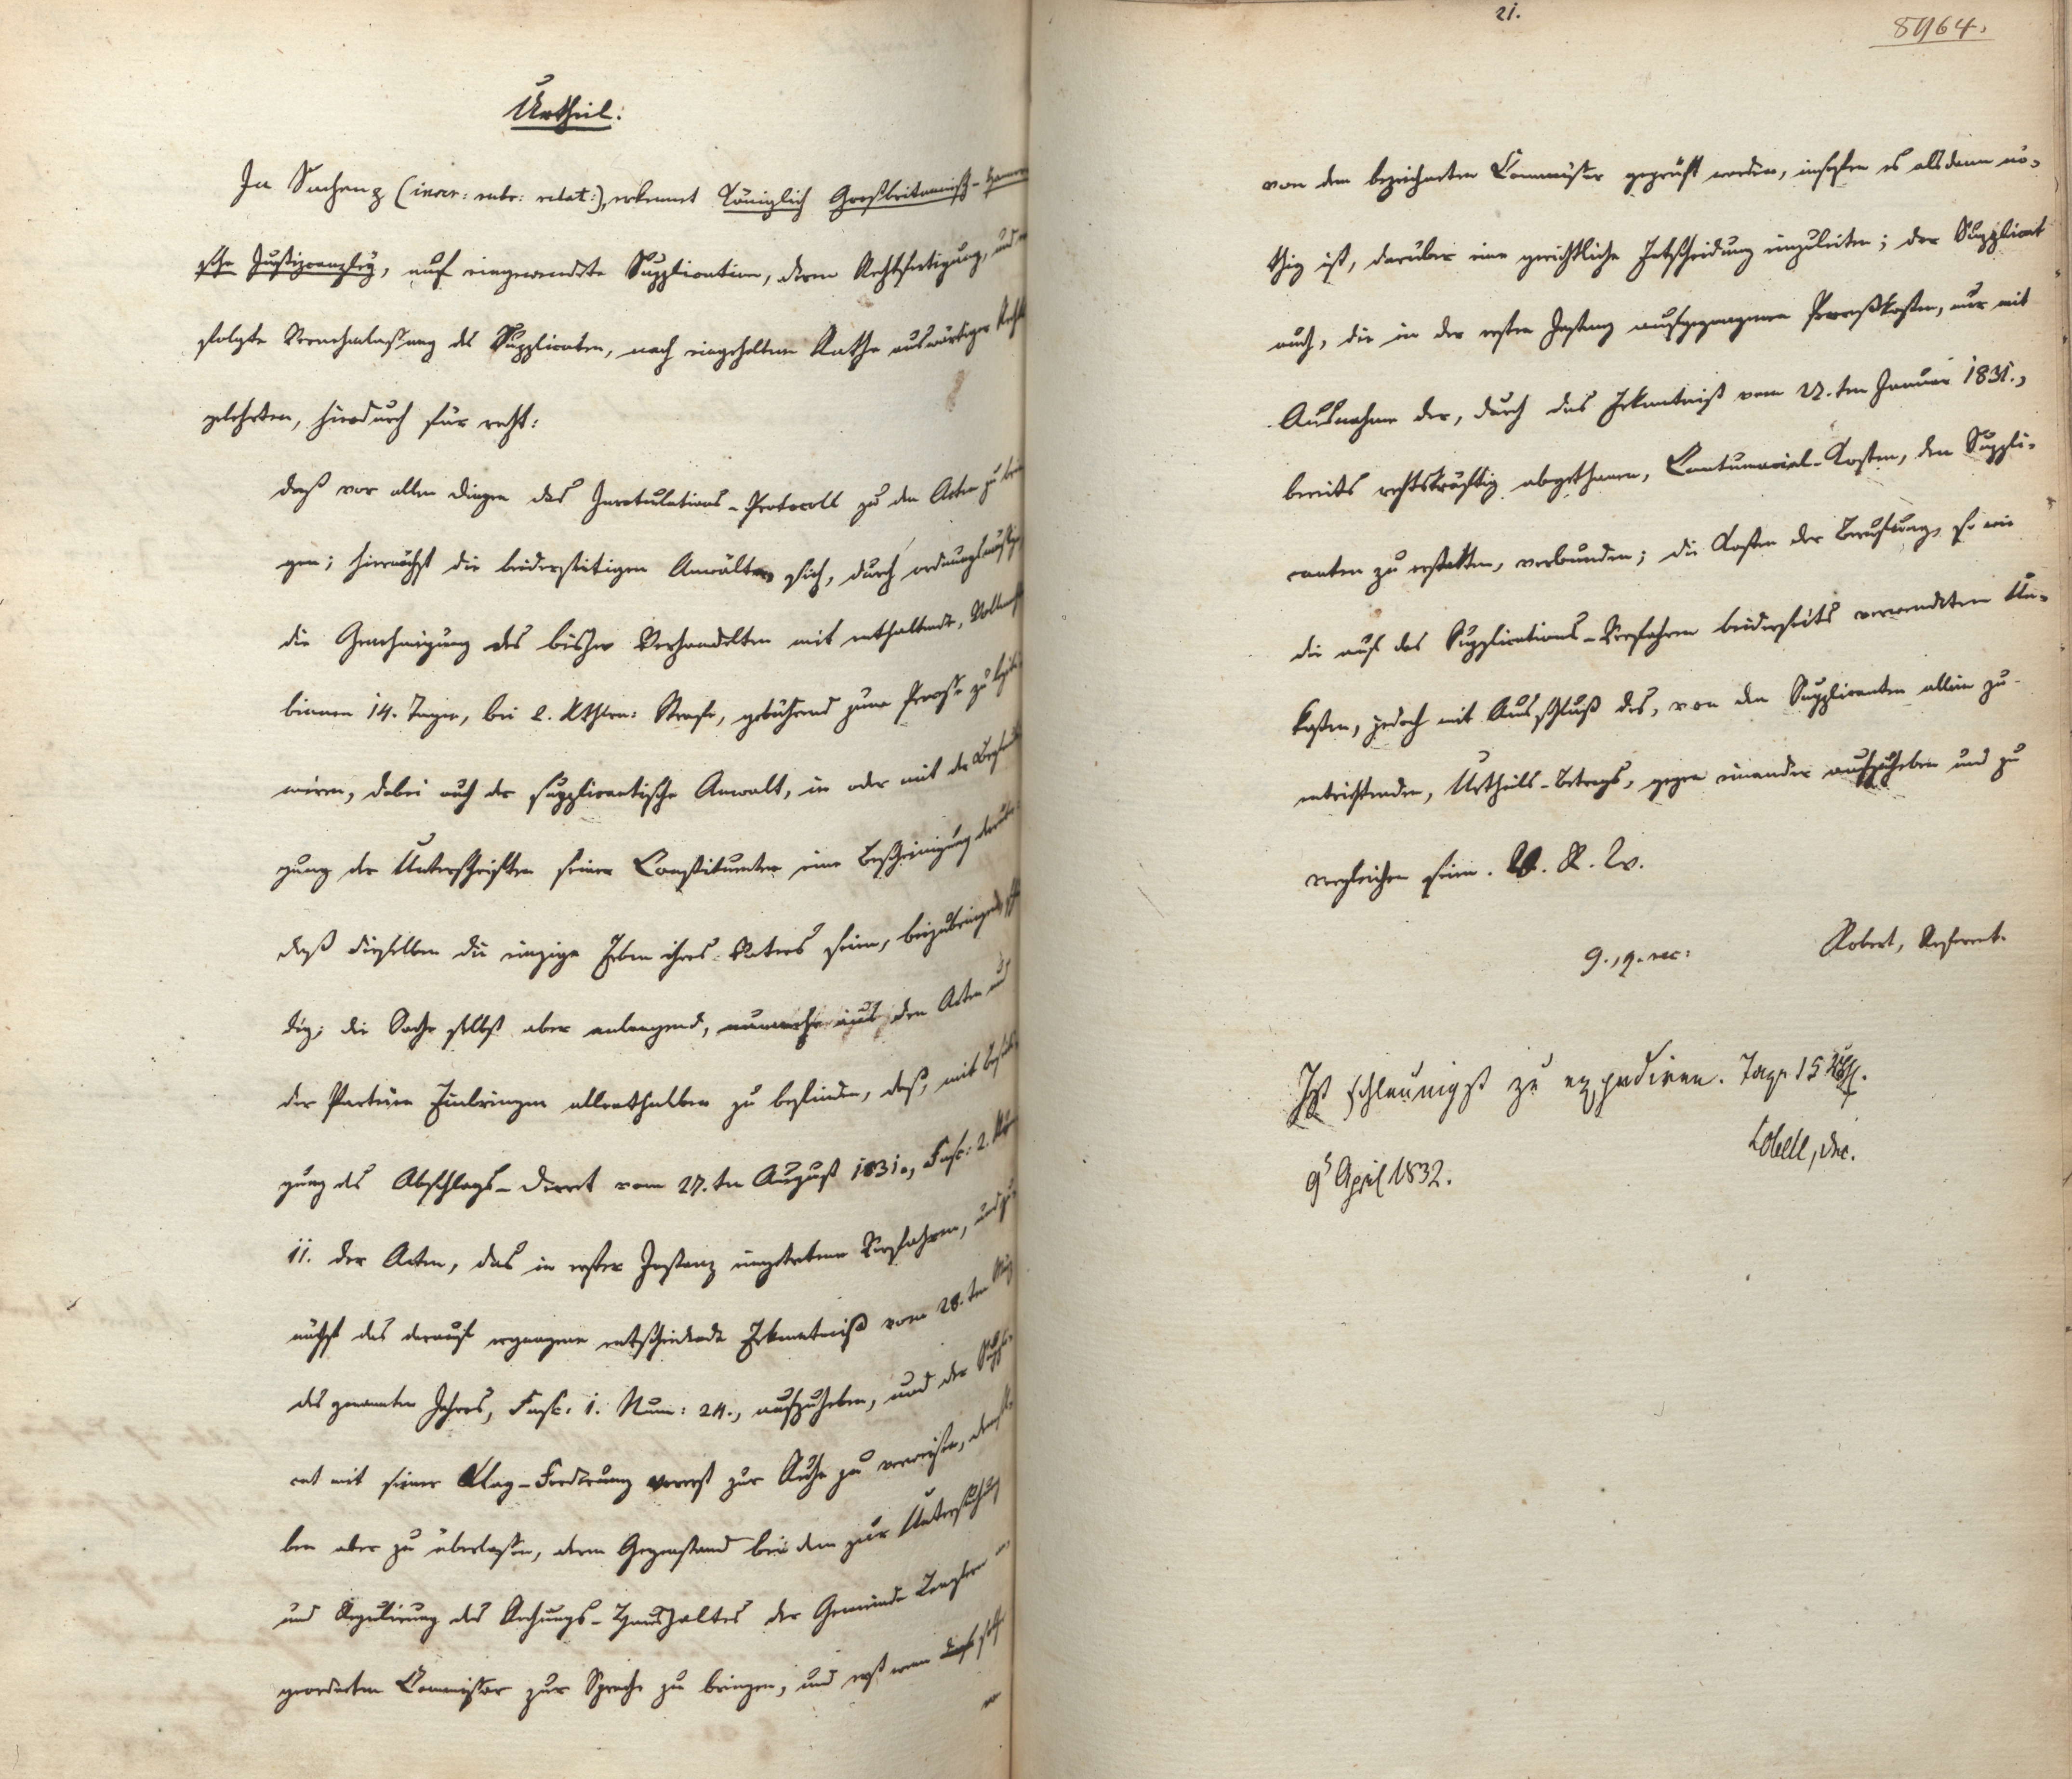 Urtheil:
In Sachen p (inser: rubr: relat:), erkennt Königlich Großbritannisch-Hannöv
sche Justizcanzley, auf eingewendete Supplication, deren Rechtfertigung, und
folgte Vernehmlassung des Supplicaten, nach eingeholtem Rathe auswärtiger Recht
gelehrten, hierdurch für recht:
daß vor allen Dingen das Inrotulations-Protocoll zu den Acten zu brin
gen; hiernächst die beiderseitigen Anwälte sich, durch ordnungsmäßige
die Genehmigung des bisher Verhandelten mit enthaltende, Vollmacht
binnen 14. Tagen, bei 2. Rthlrn: Strafe, gebührend zum Processe zu legiti
miren, dabei auch der supplicantische Anwalt, in oder mit der Beglaubi
gung der Unterschriften seiner Constituenten eine Bescheinigung darüber
daß dieselben die einzigen Erben ihres Vaters seien, beizubringen
dig; die Sache selbst aber anlangend, nunmehr aus den Acten und
der Parteien Einbringen allenthalben zu befinden, daß, mit Beseiti
gung des Abschlags-Decret vom 27.ten August 1831., Fasc: 2. Num
11. der Acten, das in erster Instanz eingetretene Verfahren, und zu
nächst das darauf ergangene entscheidende Erkenntniß vom 28.ten
des genannten Jahres, Fasc: 1. Num: 24., aufzuheben, und der Suppli
cat mit seiner Klag-Forderung vorerst zur Ruhe zu verweisen, demsel
ben aber zu überlassen, deren Gegenstand bei dem zur Untersuchung
und Regulirung des Rechnungs-Haushaltes der Gemeinde
geordneten Commissar zur Sprache zu bringen, und erst wenn
21.
8964.
von dem bezeichneten Commissar geprüft worden, insofern es alsdann nö-
thig ist, darüber eine gerichtliche Entscheidung einzuleiten; der Supplicat
auch, die in der ersten Instanz aufgegangenen Proceßkosten, nur mit
Ausnahme der, durch das Erkenntniß vom 27.ten Januar 1831.,
bereits rechtskräftig abgethanen, Contumacial-Kosten, den Suppli-
canten zu erstatten, verbunden; die Kosten der Berufung, so wie
die auf das Supplications-Verfahren beiderseits verwendeten Un-
kosten, jedoch mit Ausschluß des, von den Supplicanten allein zu
entrichtenden, Urtheils-Betrags, gegen einander aufzuheben und zu
vergleichen seien. V. R. W.
Robert, Referent.
Ist schleunigst zu expediren. Taxe 15
9t April 1832.